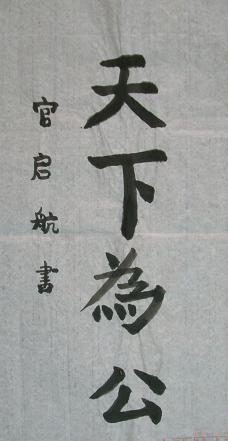 天下為公
官启航書